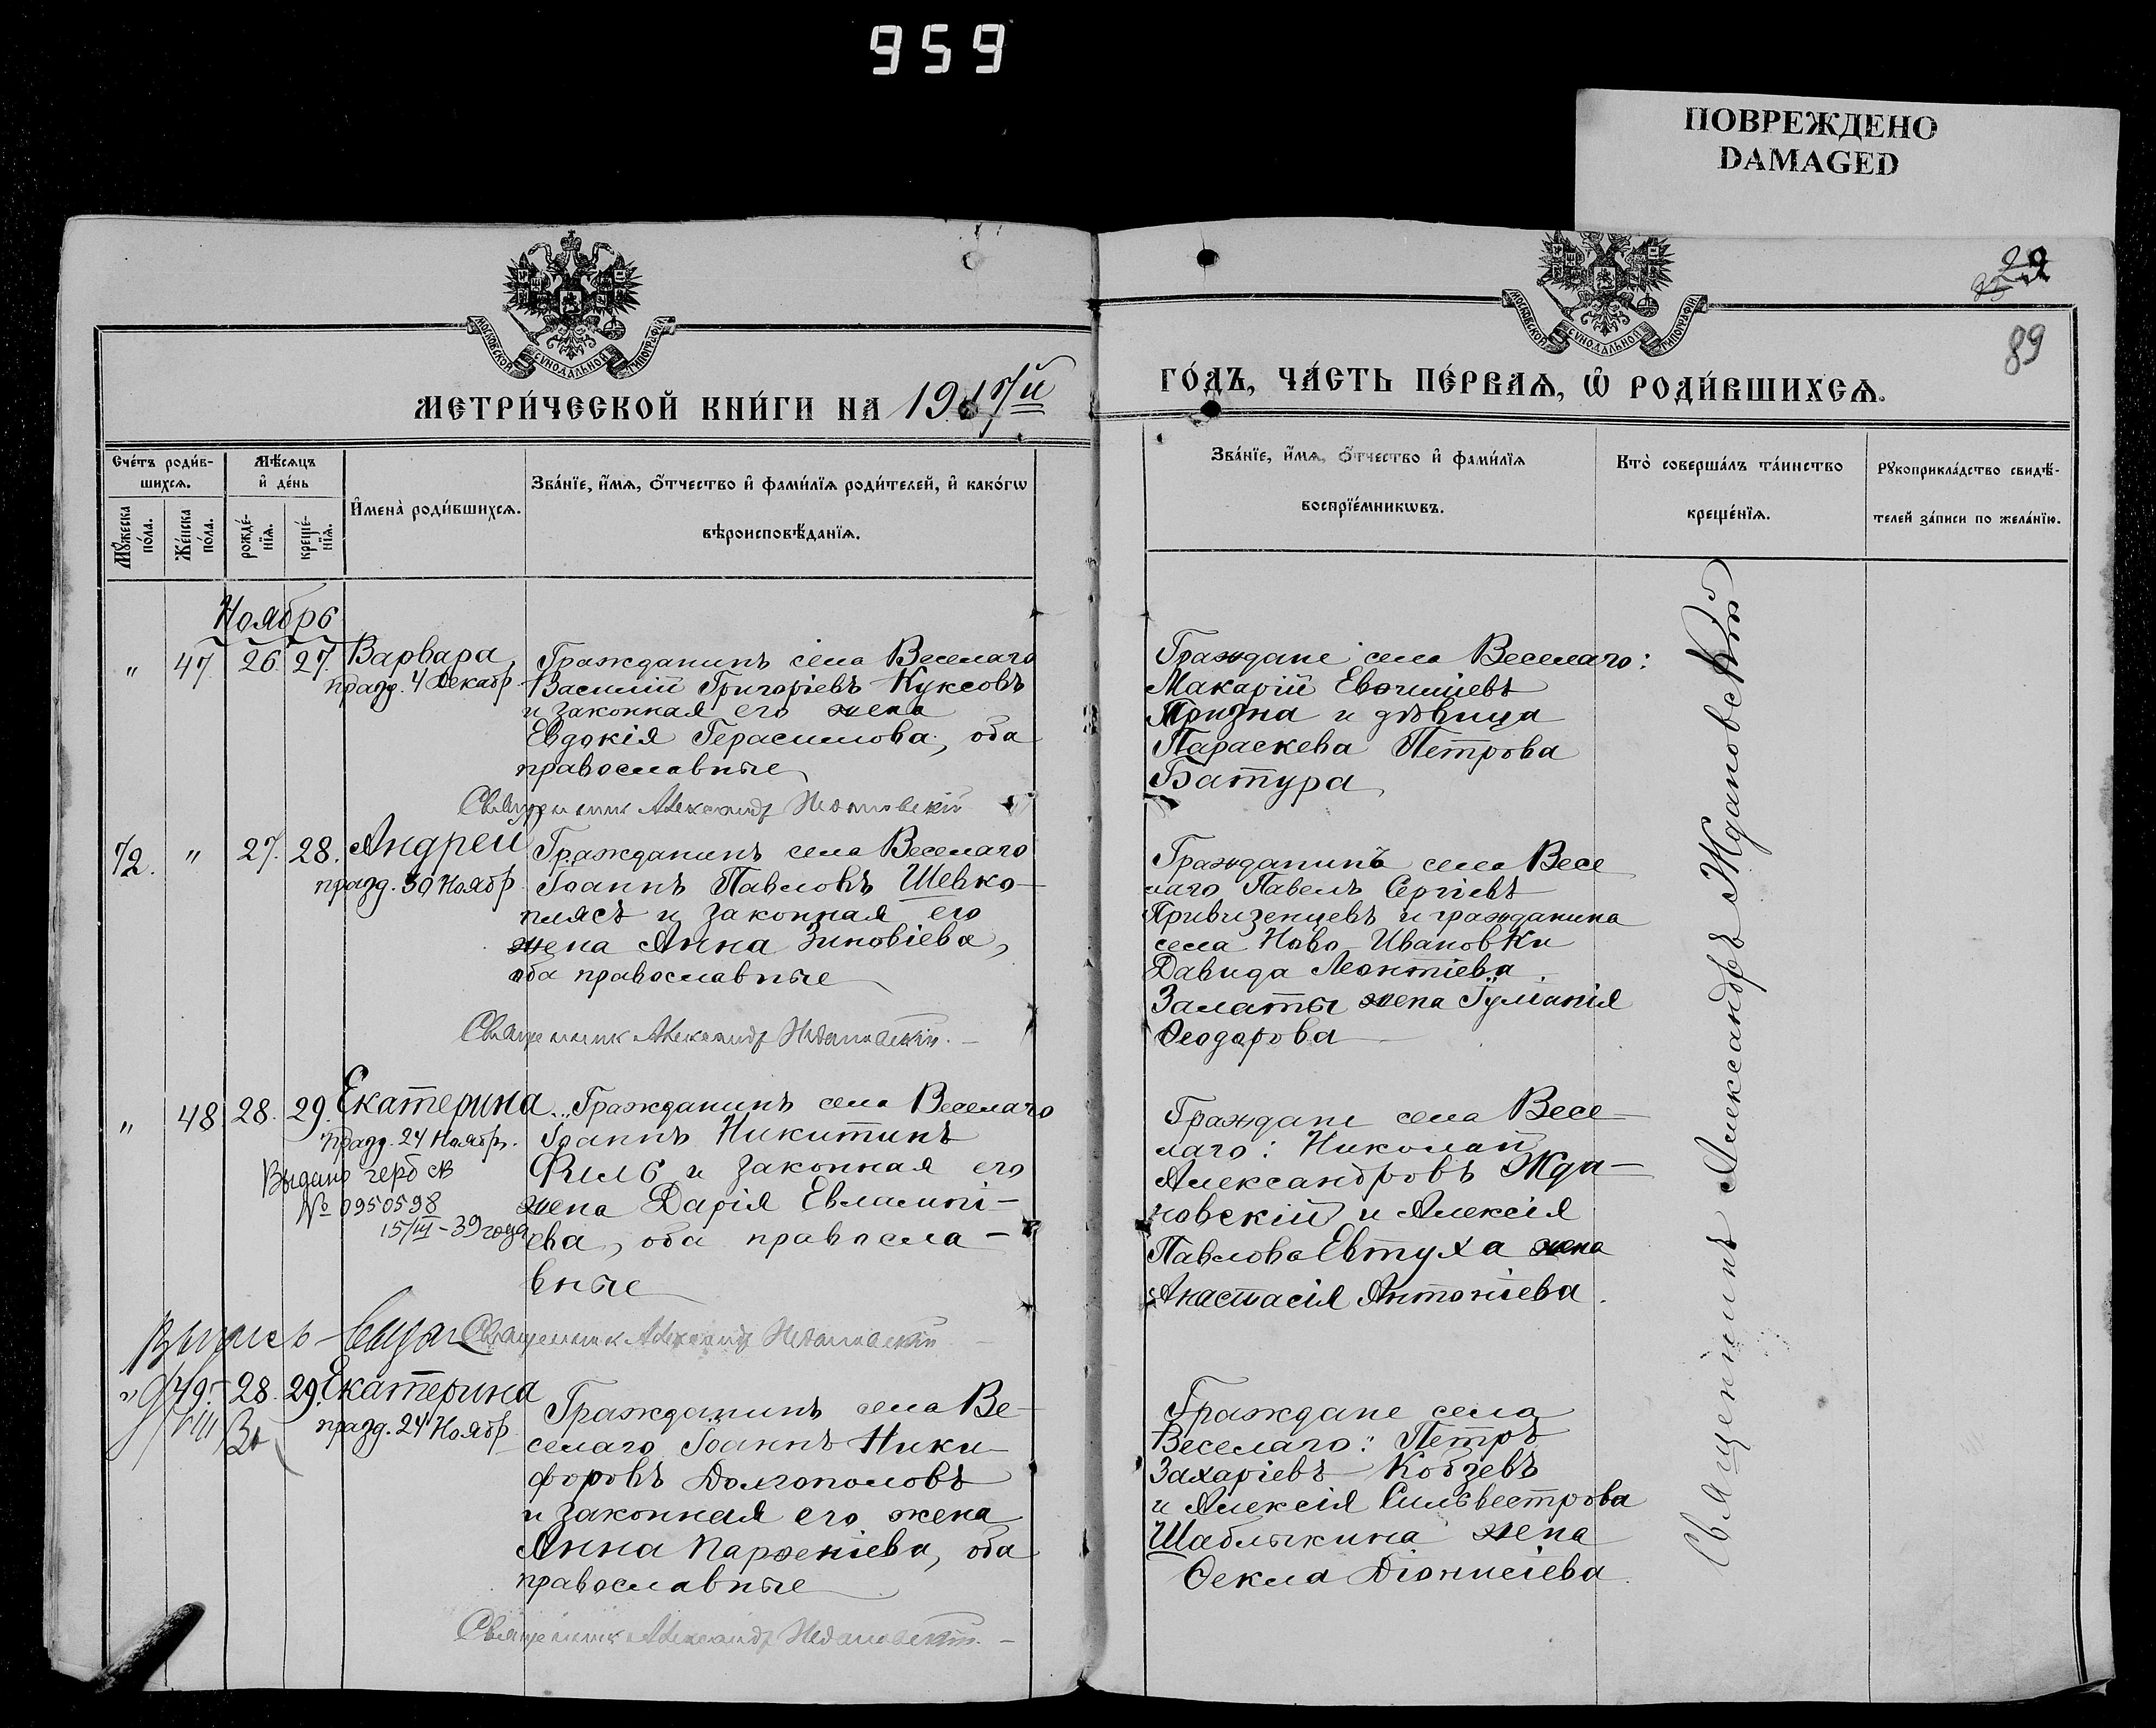 959
ПОВРЕЖДЕНО
DAMAGED
МОСКОВСКОЙ СУНОДАЛЬНОЙ ТИПОГРАФІИ
МОСКОВСКОЙ СУНОДАЛЬНОЙ ТИПОГРАФІИ
29
89
МЕТРИ́ЧЕСКОЙ КНИ́ГИ НА 1917й
ГО́ДЪ, ЧА́СТЬ ПЕ́РВАѦ, Ѿ РОДИ́ВШИХСѦ.
Сче́тъ роди́в-
шихсѧ.
Мꙋ́жеска по́ла.
Же́нска по́ла.
Мѣ́сѧцъ и҆ де́нь
рожде́-нїѧ.
креще́-нїѧ.
И҆мена̀ роди́вшихсѧ.
Зва́нїе, и҆́мѧ, ѻ҆́тчество и҆ фами́лїѧ роди́телей, и҆ како́гѡ
вѣроисповѣ́данїѧ.
Зва́нїе, и҆́мѧ, ѻ҆́тчество и҆ фами́лїѧ
воспрїе́мникѡвъ.
Кто̀ соверша́лъ та́инство
креще́нїѧ.
Рꙋкоприкла́дство свидѣ́-
телей за́писи по жела́нїю.
Ноябрь
" 47 26. 27. Варвара,
празд. 4 Декабр.
Гражданинъ села Веселаго
Василій Григоріевъ Куксовъ
и законная его жена
Евдокія Герасимова, оба
православные
Священник Александр Ждановскій
Граждане села Веселаго:
Макарій
Призна и дѣвица
Параскева Петрова
Батура
72. " 27. 28. Андрей
празд. 30 Ноябр.
Гражданинъ села Веселаго
Іоаннъ Павловъ Шевко-
плясъ и законная его
жена Анна Зиновіева,
оба православные
Священник Александр Ждановскій.
Гражданинъ села Весе
лаго Павелъ Сергіевъ
Привизенцевъ и гражданина
села Ново-Ивановки
Давида Леонтіева
Залаты жена Іуліанія
Ѳеодорова
" 48 28. 29. Екатерина
празд. 24 Ноябр.
Выдано герб св
№ 0950598
15/III-39 года
Гражданинъ села Веселаго
Іоаннъ Никитинъ
Филь и законная его
жена Дарія Евлампі-
ева, оба правосла-
вные
Священник Александр Ждановскій
Граждане села Весе-
лаго: Николай
Александровъ Жда-
новскій и Алексія
Павлова Евтуха жена
Анастасія Антоніева.
" 49. 28. 29. Екатерина
празд. 24 Ноябр.
Гражданинъ села Ве-
селаго Іоаннъ Ники-
форовъ Долгополовъ
и законная его жена
Анна Парѳеніева, оба
православные
Священник Александр Ждановскій.
Граждане села
Веселаго: Петръ
Захаріевъ Кобзевъ
и Алексія Сильвестрова
Шаблыкина жена
Ѳекла Діонисіева.
Священникъ Александръ Ждановскій